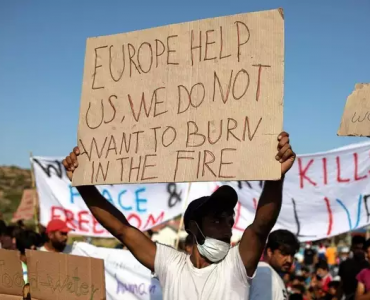 EUROPE HELP
US, WE DO NOT
WANT TO BURN
IN THE FIRE
PEACE &
FREEDOM
KILLS